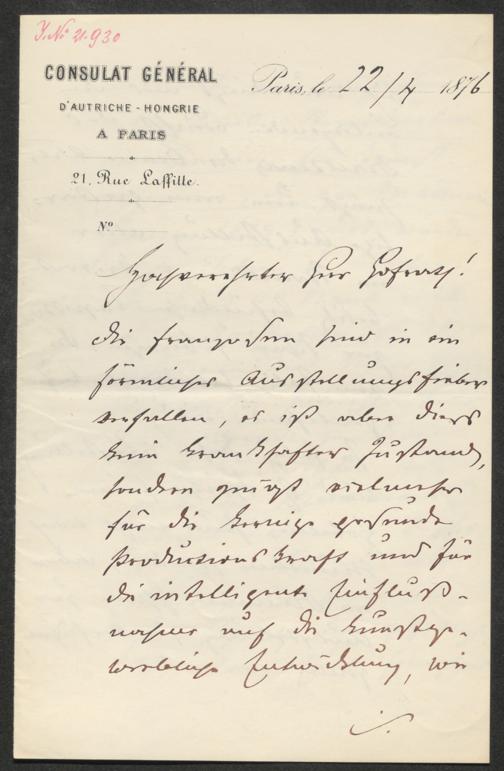 J. No 21.930
CONSULAT GÉNÉRAL
D'AUTRICHE - HONGRIE
A PARIS
21, Rue Laffitte.
No
Paris, le 22/4 1876
Hochverehrter Herr Hofrath!
die Franzosen sind in ein
förmliches Ausstellungsfieber
verfallen, es ist aber dieß
kein krankhafter Zustand,
sondern zeugt vielmehr
für die kernige gesunde
Productionskraft und für
die intelligente Einfluß-
nahme auf die kunstge-
werbliche Entwicklung, wie